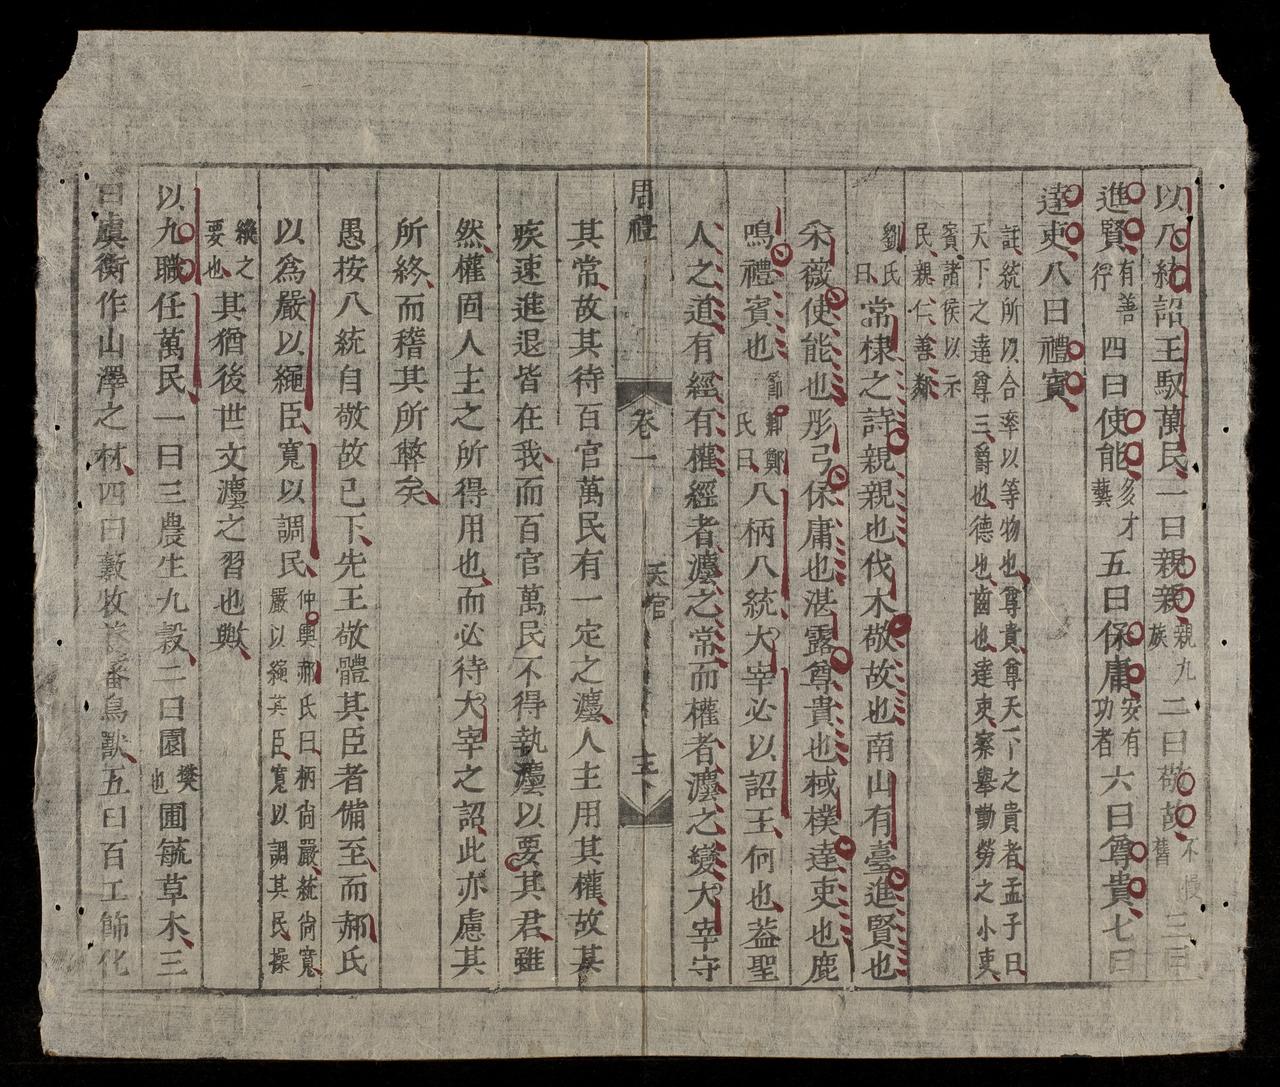 以八統詔王馭萬民一曰親親親九族二曰敬故不慢舊三曰
進賢有善行四曰使能多才藝五曰保庸安有功者六曰尊貴七曰
達吏八曰禮賓
註統所以合率以等物也尊貴尊天下之貴者孟子曰
天下之達尊三爵也德也齒也達吏察舉勤勞之小吏
賓諸侯以示
民親仁善鄰
劉氏曰常棣之詩親親也伐木敬故也南山有臺進賢也
采薇使能也彤弓保庸也湛露尊貴也棫樸達吏也鹿
鳴禮賓也節鄭氏曰八柄八統大宰必以詔王何也葢聖
人之道有經有權經者灋之常而權者灋之變大宰守
周禮 卷一 天官
其常故其待百官萬民有一定之灋人主用其權故其
疾速進退皆在我而百官萬民不得執灋以要其君雖
然權固人主之所得用也而必待大宰之詔此亦慮其
所終而稽其所弊矣
愚按八統自敬故已下先王敬體其臣者備至而郝氏
以爲嚴以繩臣寬以調民仲輿郝氏曰柄尚嚴統尚寬嚴以繩其臣寬以調其民操
縱之要也其猶後世文灋之習也歟
以九職任萬民一曰三農生九穀二曰園樊也圃毓草木三
曰虞衡作山澤之材四曰藪牧養蕃鳥獸五曰百工飾化